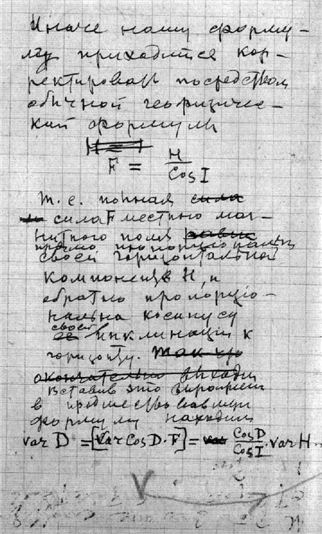 Иначе нашу форму-
лу приходится кор-
ректировать посредством
обычной геофизичес-
кой формулы
F = H / Cos I
т. е. полная сила
сила F местного маг-
нитного поля равна
прямо пропорциональна
своей горизонтальной
компоненте H, и
обратно пропорціо-
нальна косинусу
своей
ея инклинации к
горизонту. Так что
окончательно выходит
вставив это выражение
в предшествовавшую
формулу находим
var D = [Var Cos D · F] = Cos D / Cos I · var H